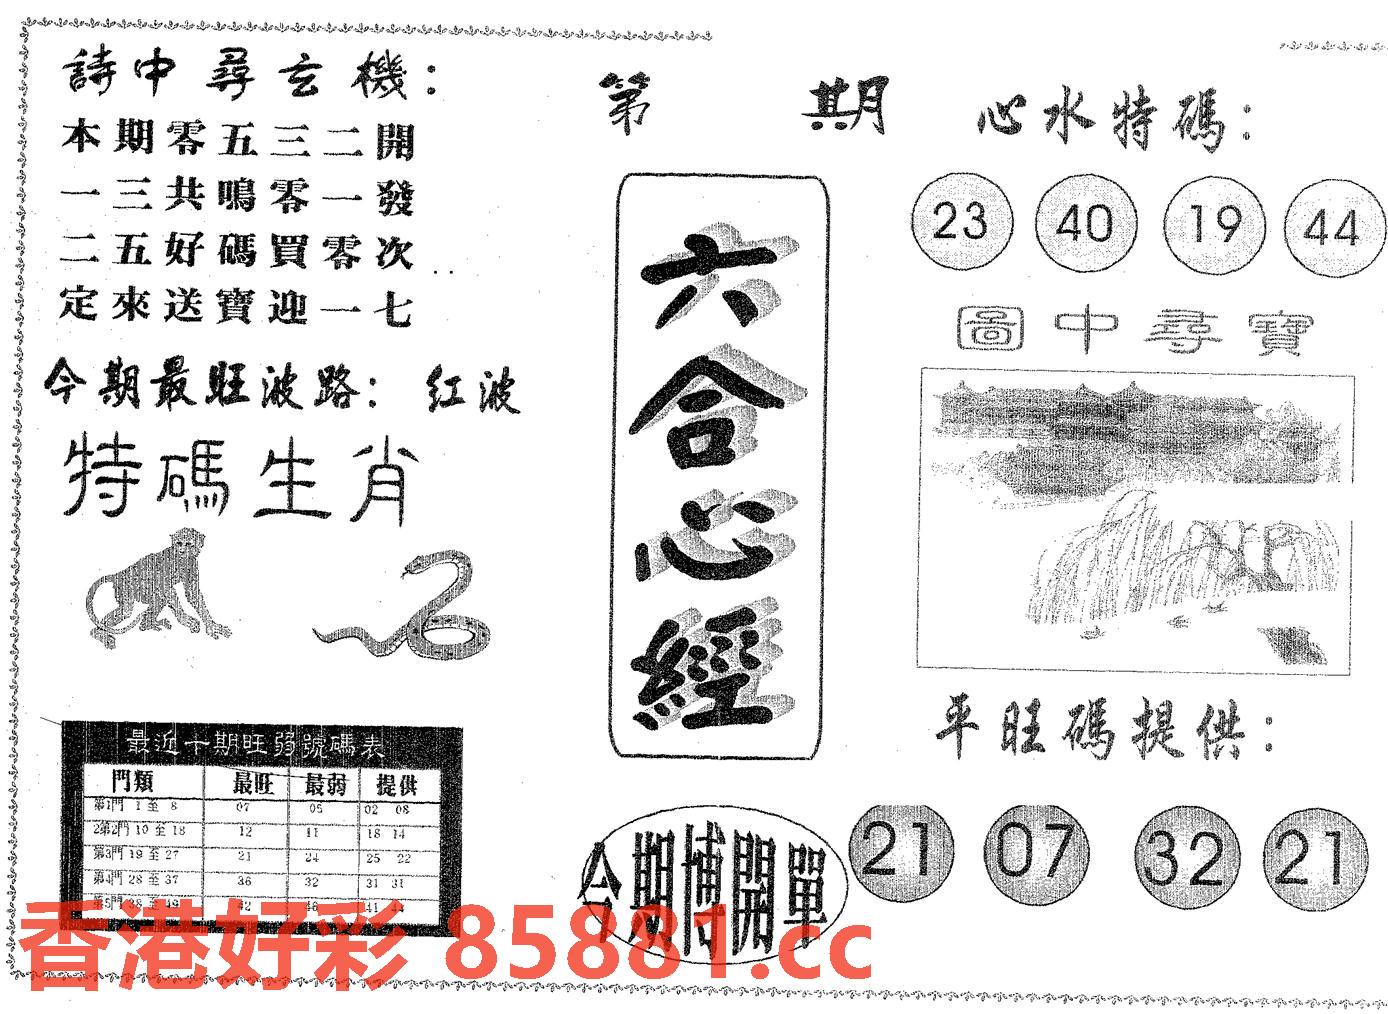 詩中尋玄機：
本期零五三二開
一三共鳴零一發
二五好碼買零次
定來送寶迎一七
今期最旺波路：紅波
特碼生肖
最近十期旺弱號碼表
門類 最旺 最弱 提供
第1門 1至 8 07 05 02 08
2第2門 10至18 12 11 18 14
第3門 19至27 21 24 25 22
第4門 28至37 36 32 31 31
第5門 38至49 42 46 41 44
第 期
六合心經
今期博開單
心水特碼：
23 40 19 44
圖中尋寶
平旺碼提供：
21 07 32 21
香港好彩 85881.cc